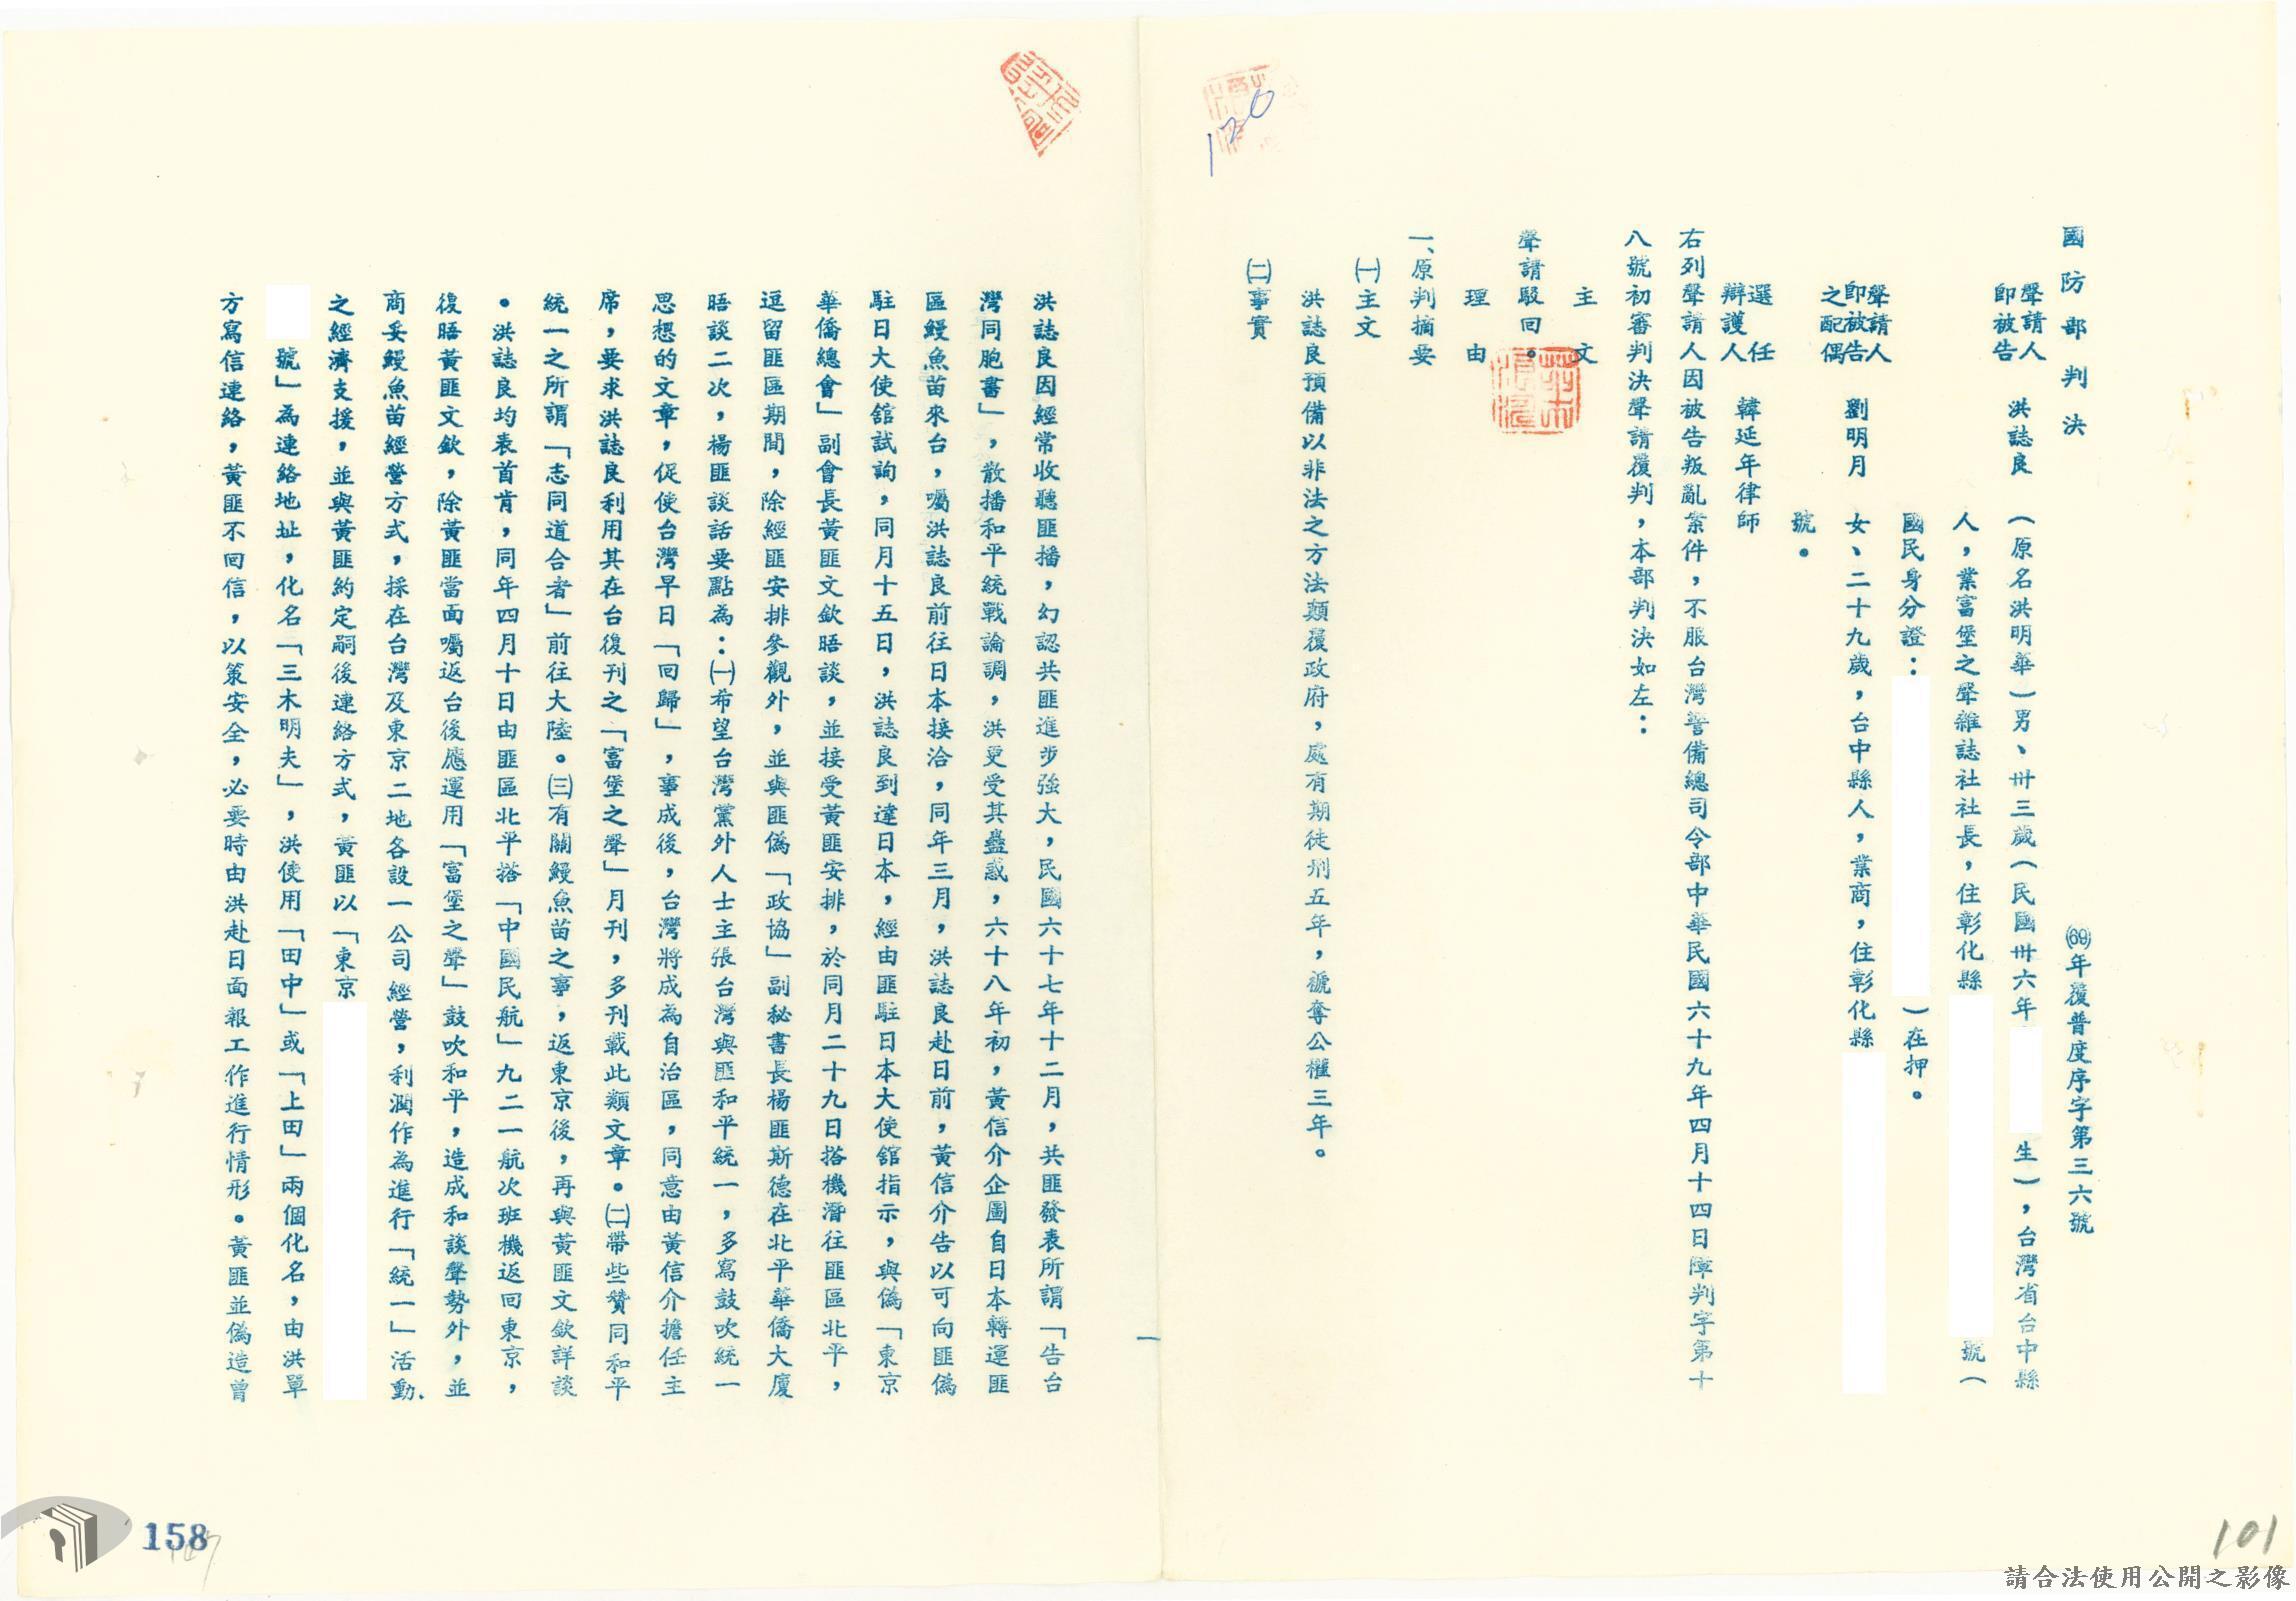 國防部判決
(69)年覆普度序字第三六號
聲請人即被告 洪誌良 (原名洪明華)男、卅三歲(民國卅六年 生),台灣省台中縣
人,業富堡之聲雜誌社社長,住彰化縣 號(
國民身分證: )在押。
聲請人即被告之配偶 劉明月 女、二十九歲,台中縣人,業商,住彰化縣
號。
選任辯護人 韓延年律師
右列聲請人因被告叛亂案件,不服台灣警備總司令部中華民國六十九年四月十四日障判字第十
八號初審判決聲請覆判,本部判決如左:
主文
聲請駁回。
理由
一、原判摘要
㈠主文
洪誌良預備以非法之方法顛覆政府,處有期徒刑五年,褫奪公權三年。
㈡事實
一
洪誌良因經常收聽匪播,幻認共匪進步強大,民國六十七年十二月,共匪發表所謂「告台
灣同胞書」,散播和平統戰論調,洪更受其蠱惑,六十八年初,黃信介企圖自日本轉運匪
區鰻魚苗來台,囑洪誌良前往日本接洽,同年三月,洪誌良赴日前,黃信介告以可向匪偽
駐日大使舘試詢,同月十五日,洪誌良到達日本,經由匪駐日本大使舘指示,與偽「東京
華僑總會」副會長黃匪文欽晤談,並接受黃匪安排,於同月二十九日搭機潛往匪區北平,
逗留匪區期間,除經匪安排參觀外,並與匪偽「政協」副秘書長楊匪斯德在北平華僑大廈
晤談二次,楊匪談話要點為:㈠希望台灣黨外人士主張台灣與匪和平統一,多寫鼓吹統一
思想的文章,促使台灣早日「回歸」,事成後,台灣將成為自治區,同意由黃信介擔任主
席,要求洪誌良利用其在台復刊之「富堡之聲」月刊,多刊載此類文章。㈡帶些贊同和平
統一之所謂「志同道合者」前往大陸。㈢有關鰻魚苗之事,返東京後,再與黃匪文欽詳談
。洪誌良均表首肯,同年四月十日由匪區北平搭「中國民航」九二一航次班機返回東京,
復晤黃匪文欽,除黃匪當面囑返台後應運用「富堡之聲」鼓吹和平,造成和談聲勢外,並
商妥鰻魚苗經營方式,採在台灣及東京二地各設一公司經營,利潤作為進行「統一」活動
之經濟支援,並與黃匪約定嗣後連絡方式,黃匪以「東京
號」為連絡地址,化名「三木明夫」,洪使用「田中」或「上田」兩個化名,由洪單
方寫信連絡,黃匪不回信,以策安全,必要時由洪赴日面報工作進行情形。黃匪並偽造曾
120
101
158
請合法使用公開之影像